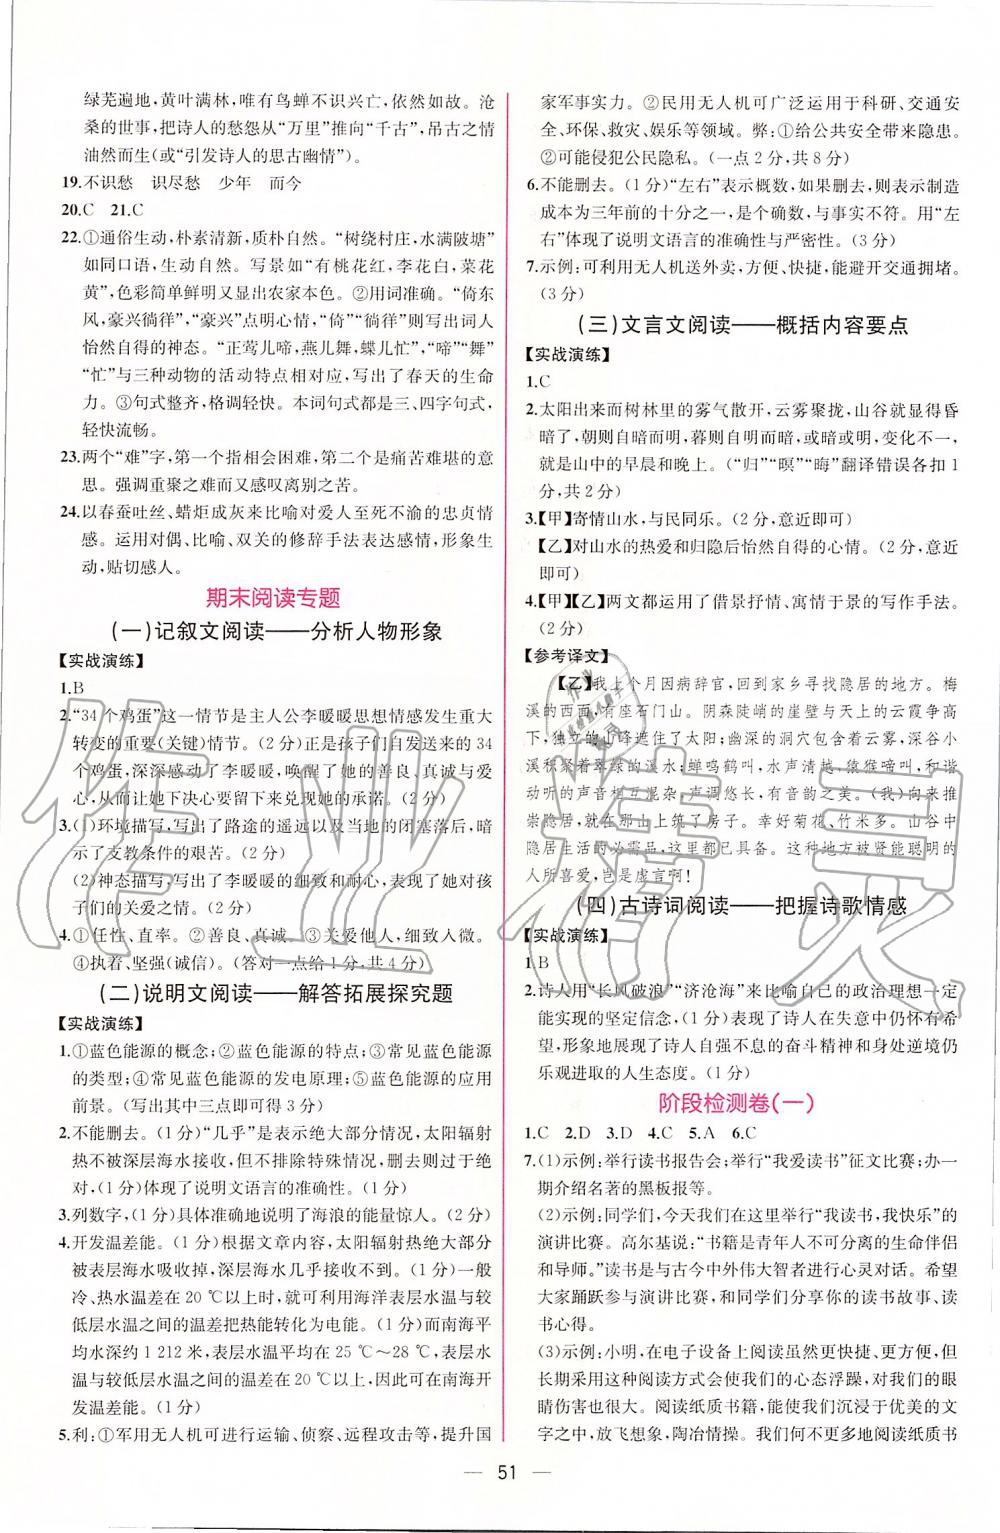 绿芜遍地，黄叶满林，唯有鸟蝉不识兴亡，依然如故。沧
桑的世事，把诗人的愁怨从“万里”推向“千古”，吊古之情
油然而生(或“引发诗人的思古幽情”)。
19.不识愁　识尽愁　少年　而今
20.C　21.C
22.①通俗生动，朴素清新，质朴自然。“树绕村庄，水满陂塘”
如同口语，生动自然。写景如“有桃花红，李花白，菜花
黄”，色彩简单鲜明又显出农家本色。②用词准确。“倚东
风，豪兴徜徉”，“豪兴”点明心情，“倚”“徜徉”则写出词人
怡然自得的神态。“正莺儿啼，燕儿舞，蝶儿忙”，“啼”“舞”
“忙”与三种动物的活动特点相对应，写出了春天的生命
力。③句式整齐，格调轻快。本词句式都是三、四字句式，
轻快流畅。
23.两个“难”字，第一个指相会困难，第二个是痛苦难堪的意
思。强调重聚之难而又感叹离别之苦。
24.以春蚕吐丝、蜡炬成灰来比喻对爱人至死不渝的忠贞情
感。运用对偶、比喻、双关的修辞手法表达感情，形象生
动，贴切感人。
期末阅读专题
(一)记叙文阅读——分析人物形象
【实战演练】
1.B
2.“34个鸡蛋”这一情节是主人公李暖暖思想情感发生重大
转变的重要(关键)情节。(2分)正是孩子们自发送来的34
个鸡蛋，深深感动了李暖暖，唤醒了她的善良、真诚与爱
心，从而让她下决心要留下来兑现她的承诺。(2分)
3.(1)环境描写，写出了路途的遥远以及当地的闭塞落后，暗
示了支教条件的艰苦。(2分)
(2)神态描写，写出了李暖暖的细致和耐心，表现了她对孩
子们的关爱之情。(2分)
4.①任性、直率。②善良、真诚。③关爱他人，细致入微。
④执着、坚强(诚信)。(答对一点给1分，共4分)
(二)说明文阅读——解答拓展探究题
【实战演练】
1.①蓝色能源的概念；②蓝色能源的特点；③常见蓝色能源
的类型；④常见蓝色能源的发电原理；⑤蓝色能源的应用
前景。(写出其中三点即可得3分)
2.不能删去。(1分)“几乎”是表示绝大部分情况，太阳辐射
热不被深层海水接收，但不排除特殊情况，删去则过于绝
对，(1分)体现了说明文语言的准确性。(1分)
3.列数字，(1分)具体准确地说明了海浪的能量惊人。(2分)
4.开发温差能。(1分)根据文章内容，太阳辐射热绝大部分
被表层海水吸收掉，深层海水几乎接收不到。(1分)一般
冷、热水温差在20 ℃以上时，就可利用海洋表层水温与较
低层水温之间的温差把热能转化为电能。(1分)而南海平
均水深约1 212米，表层水温平均在25 ℃～28 ℃，表层水温
与较低层水温之间的温差在20 ℃以上，因此可在南海开
发温差能。(1分)
5.利：①军用无人机可进行运输、侦察、远程攻击等，提升国
家军事实力。②民用无人机可广泛运用于科研、交通安
全、环保、救灾、娱乐等领域。弊：①给公共安全带来隐患。
②可能侵犯公民隐私。(一点2分，共8分)
6.不能删去。(1分)“左右”表示概数，如果删去，则表示制造
成本为三年前的十分之一，是个确数，与事实不符。用“左
右”体现了说明文语言的准确性与严密性。(3分)
7.示例：可利用无人机送外卖，方便、快捷，能避开交通拥堵。
(3分)
(三)文言文阅读——概括内容要点
【实战演练】
1.C
2.太阳出来而树林里的雾气散开，云雾聚拢，山谷就显得昏
暗了，朝则自暗而明，暮则自明而暗，或暗或明，变化不一，
就是山中的早晨和晚上。(“归”“暝”“晦”翻译错误各扣1
分，共2分)
3.【甲】寄情山水，与民同乐。(2分，意近即可)
【乙】对山水的热爱和归隐后怡然自得的心情。(2分，意近
即可)
4.【甲】【乙】两文都运用了借景抒情、寓情于景的写作手法。
(2分)
【参考译文】
【乙】我上个月因病辞官，回到家乡寻找隐居的地方。梅
溪的西面，有座石门山。阴森陡峭的崖壁与天上的云霞争高
下，独立的山峰遮住了太阳；幽深的洞穴包含着云雾，深谷小
溪积聚着翠绿的溪水；蝉鸣鹤叫，水声清越，猿猴啼叫，和谐
动听的声音相互混杂，声调悠长，有音韵之美。(我)向来推
崇隐居，就在那山上筑了房子。幸好菊花、竹米多。山谷中
隐居生活的必需品，这里都已具备。这种地方被贤能聪明的
人所喜爱，岂是虚言啊！
(四)古诗词阅读——把握诗歌情感
【实战演练】
1.B
2.诗人用“长风破浪”“济沧海”来比喻自己的政治理想一定
能实现的坚定信念，(1分)表现了诗人在失意中仍怀有希
望，形象地展现了诗人自强不息的奋斗精神和身处逆境仍
乐观进取的人生态度。(1分)
阶段检测卷(一)
1.C　2.D　3.D　4.C　5.A　6.C
7.(1)示例：举行读书报告会；举行“我爱读书”征文比赛；办一
期介绍名著的黑板报等。
(2)示例：同学们，今天我们在这里举行“我读书，我快乐”的
演讲比赛。高尔基说：“书籍是青年人不可分离的生命伴侣
和导师。”读书是与古今中外伟大智者进行心灵对话。希望
大家踊跃参与演讲比赛，和同学们分享你的读书故事、读
书心得。
(3)示例：小明，在电子设备上阅读虽然更快捷、更方便，但
长期采用这种阅读方式会使我们的心态浮躁，对我们的眼
睛伤害也很大。阅读纸质书籍，能使我们沉浸于优美的文
字之中，放飞想象，陶冶情操。我们何不更多地阅读纸质书
— 51 —
作业精灵